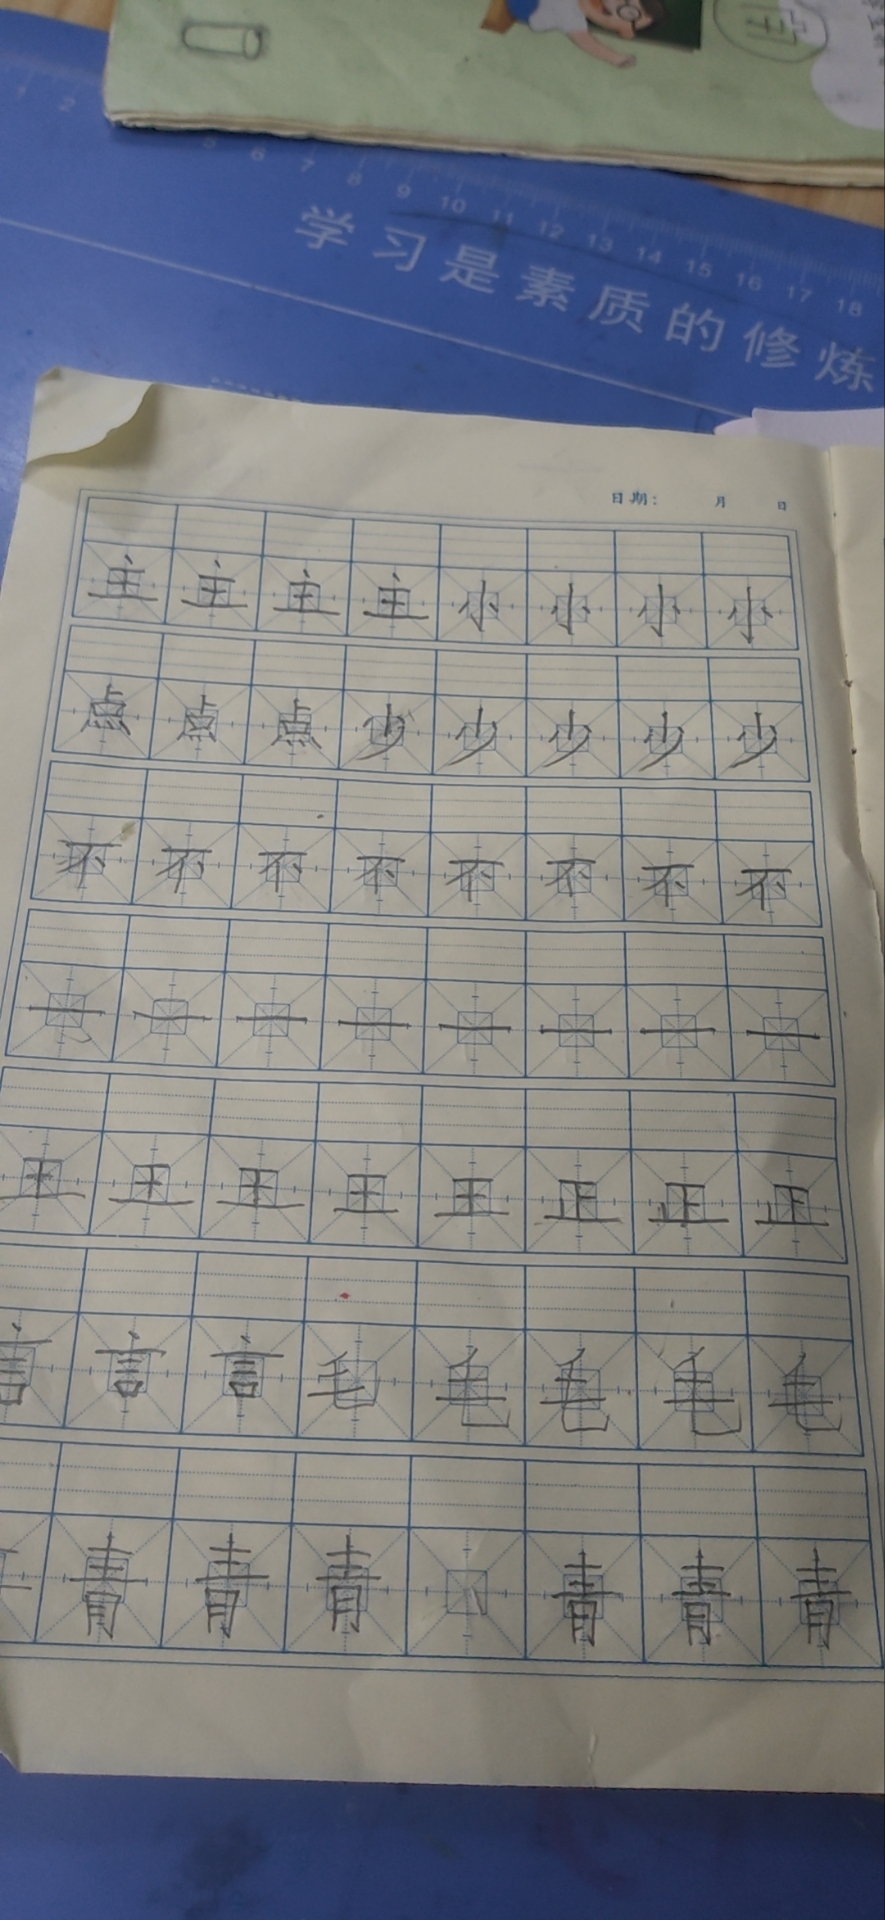 1 2 5 6 7 8 9 10 11 12 13 14 15 16 17 18
学习是素质的修炼
日期： 月 日
主 主 主 主 小 小 小 小
点 点 点 少 少 少 少 少
不 不 不 不 不 不 不 不
一 一 一 一 一 一 一 一
王 王 王 王 王 正 正 正
言 言 言 毛 毛 毛 毛 毛
青 青 青 青 青 青